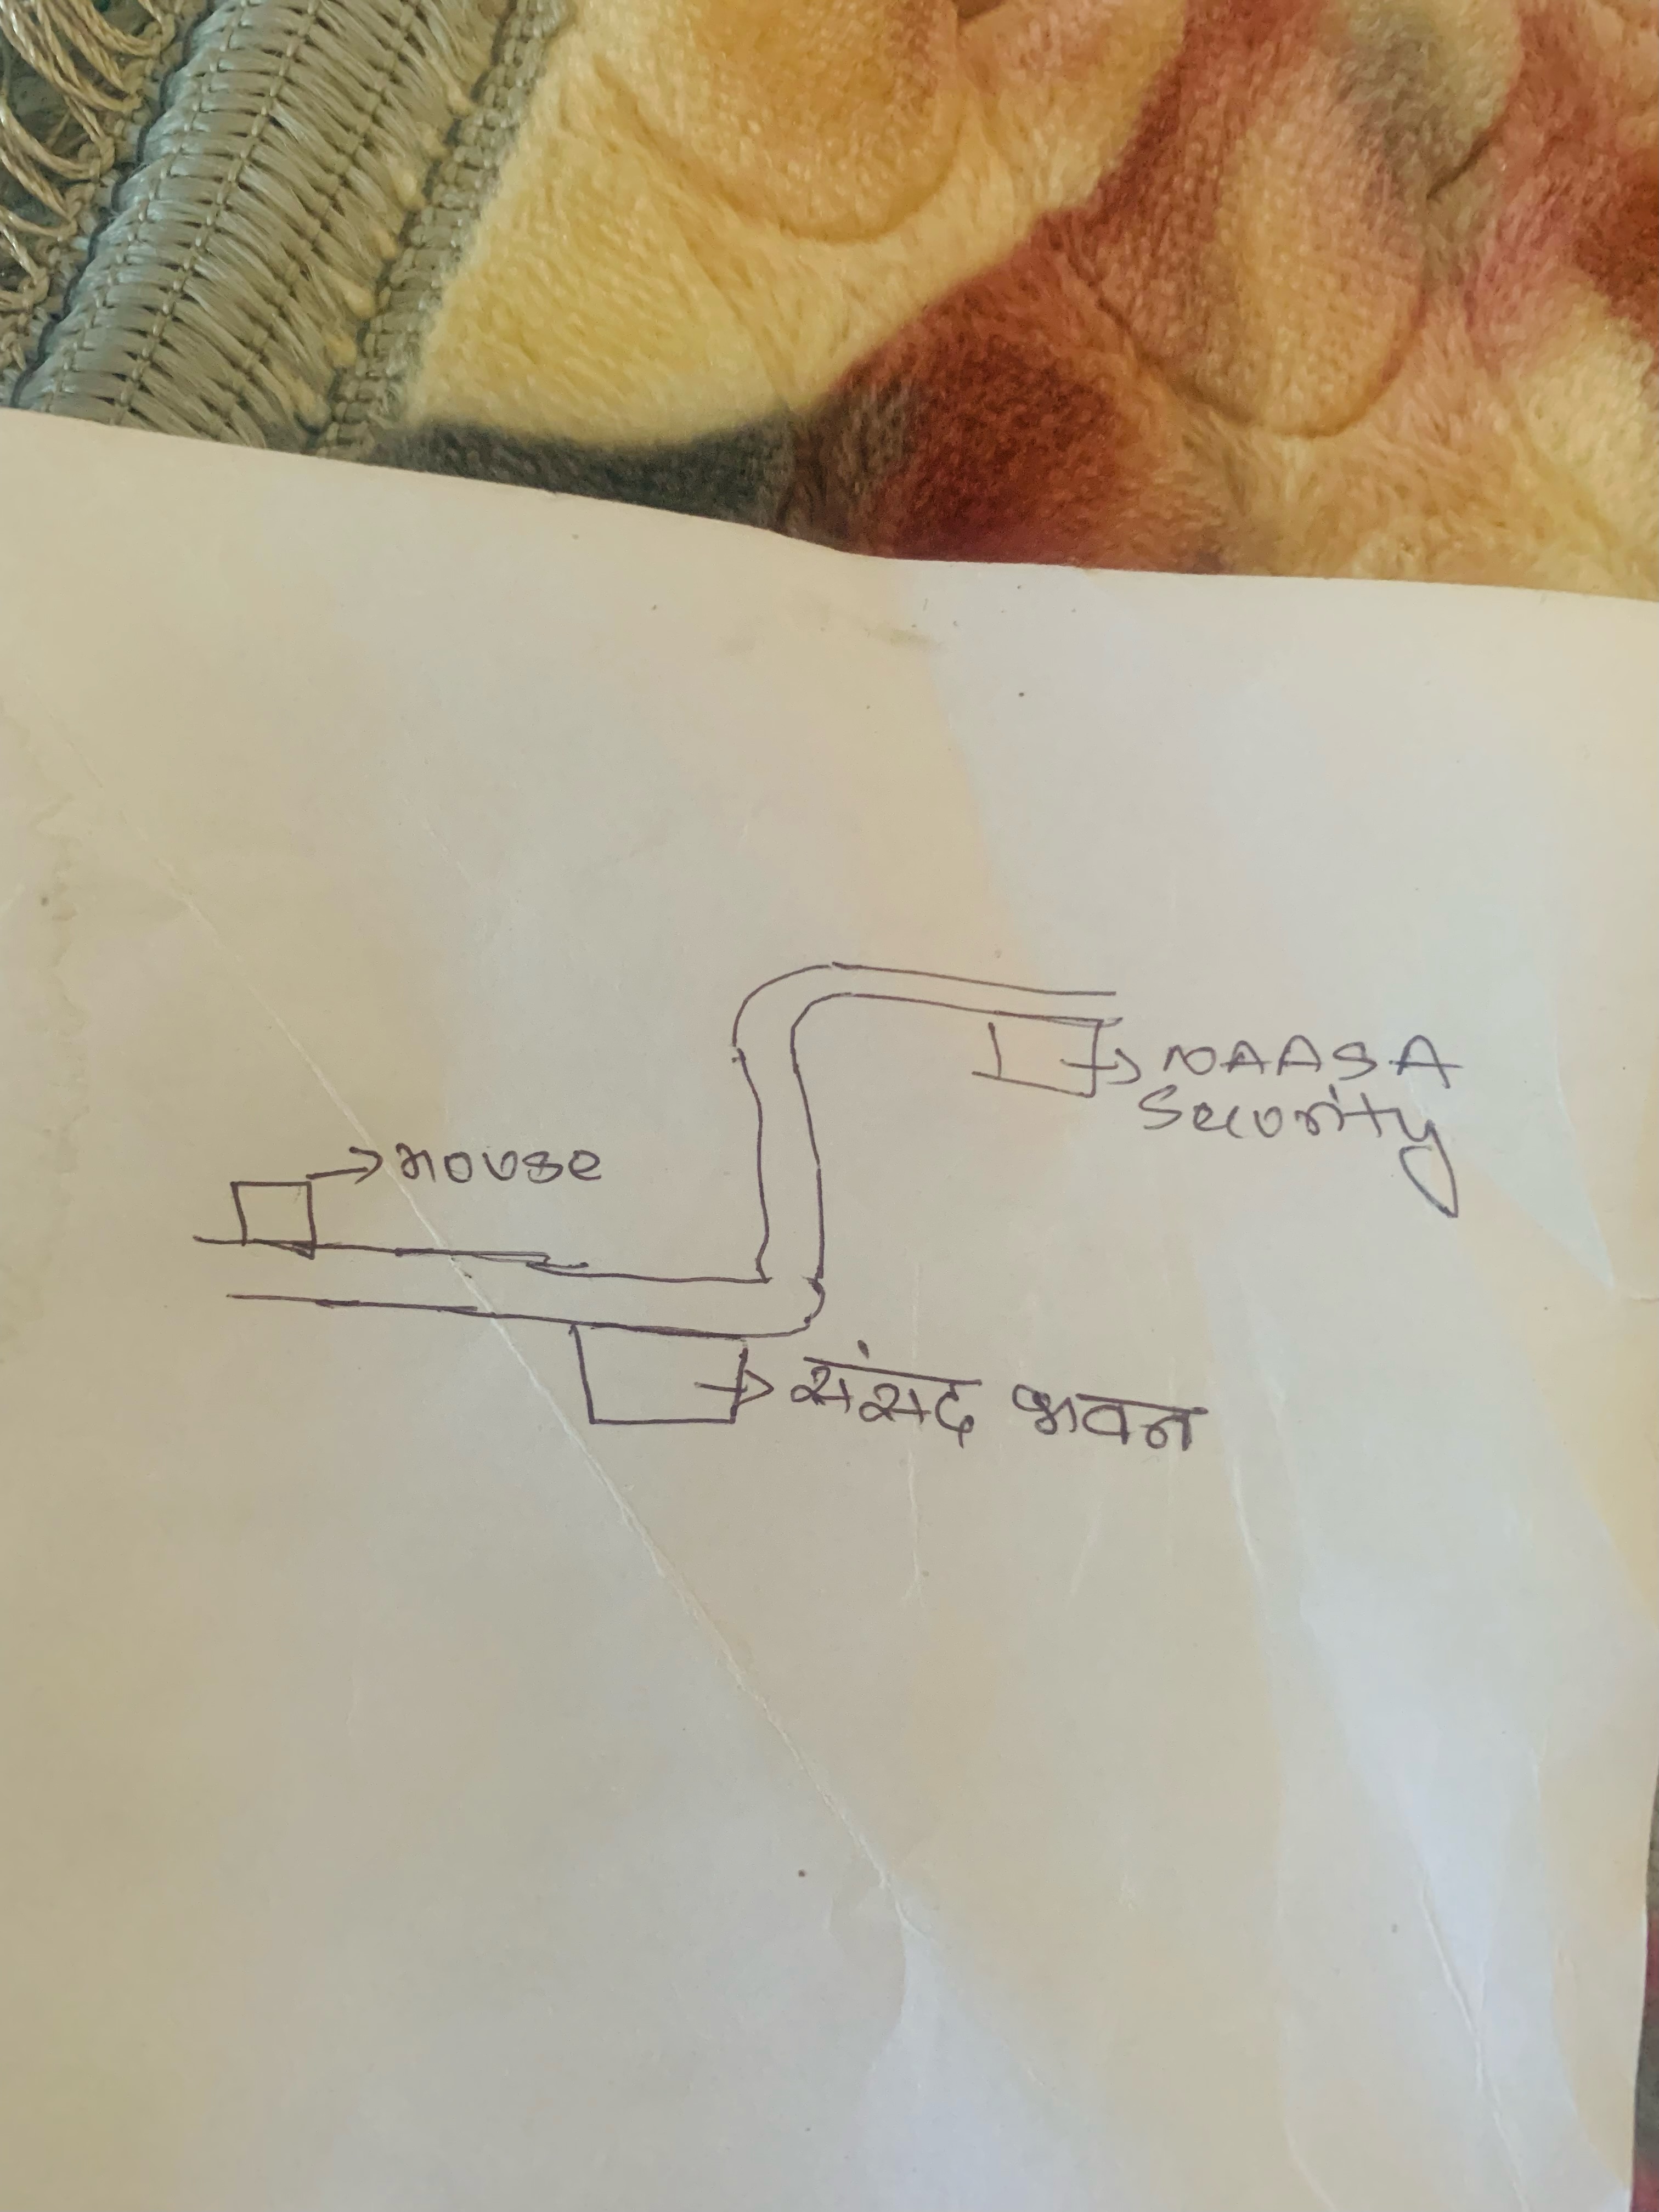 NAASA
Security
House
संसद भवन